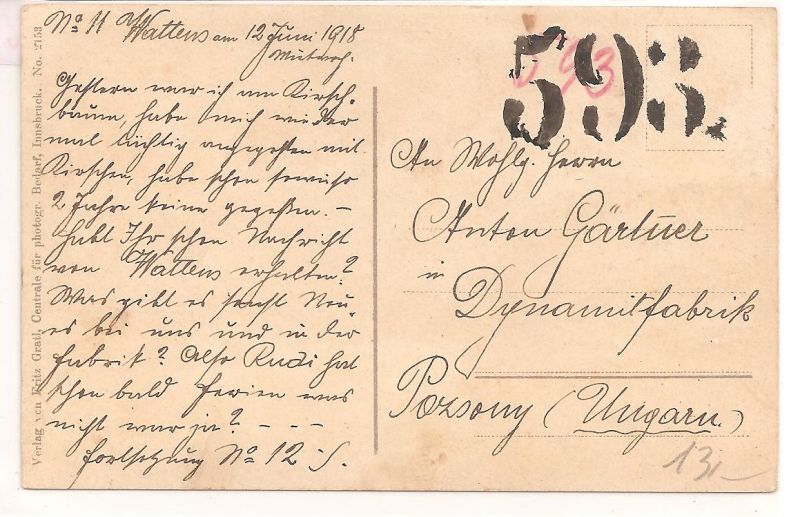 No 11 Wattens am 12 Juni 1918
Mittwoch.
Gestern war ich am Kirsch-
baum, habe mich wieder
mal tüchtig angegessen mit
Kirschen, habe schon sowieso
2 Jahre keine gegessen. –
Habt Ihr schon Nachricht
von Wattens erhalten?
Was gibt es sonst Neu
es bei uns und in der
Fabrik? Also Rudi hat
schon bald Ferien was
nicht war ja? - - -
Fortsetzung No 12
Verlag von Fritz Gratl, Centrale für photogr. Bedarf, Innsbruck. No. 2153
593
598.
An Wohlg. Herrn
Anton Gärtner
in
Dynamitfabrik
Pozsony (Ungarn.)
13,-